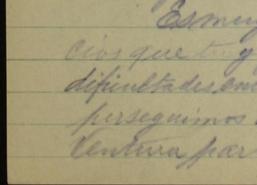 Es muy
cios que tu y
dificultades en
perseguimos
Ventura par